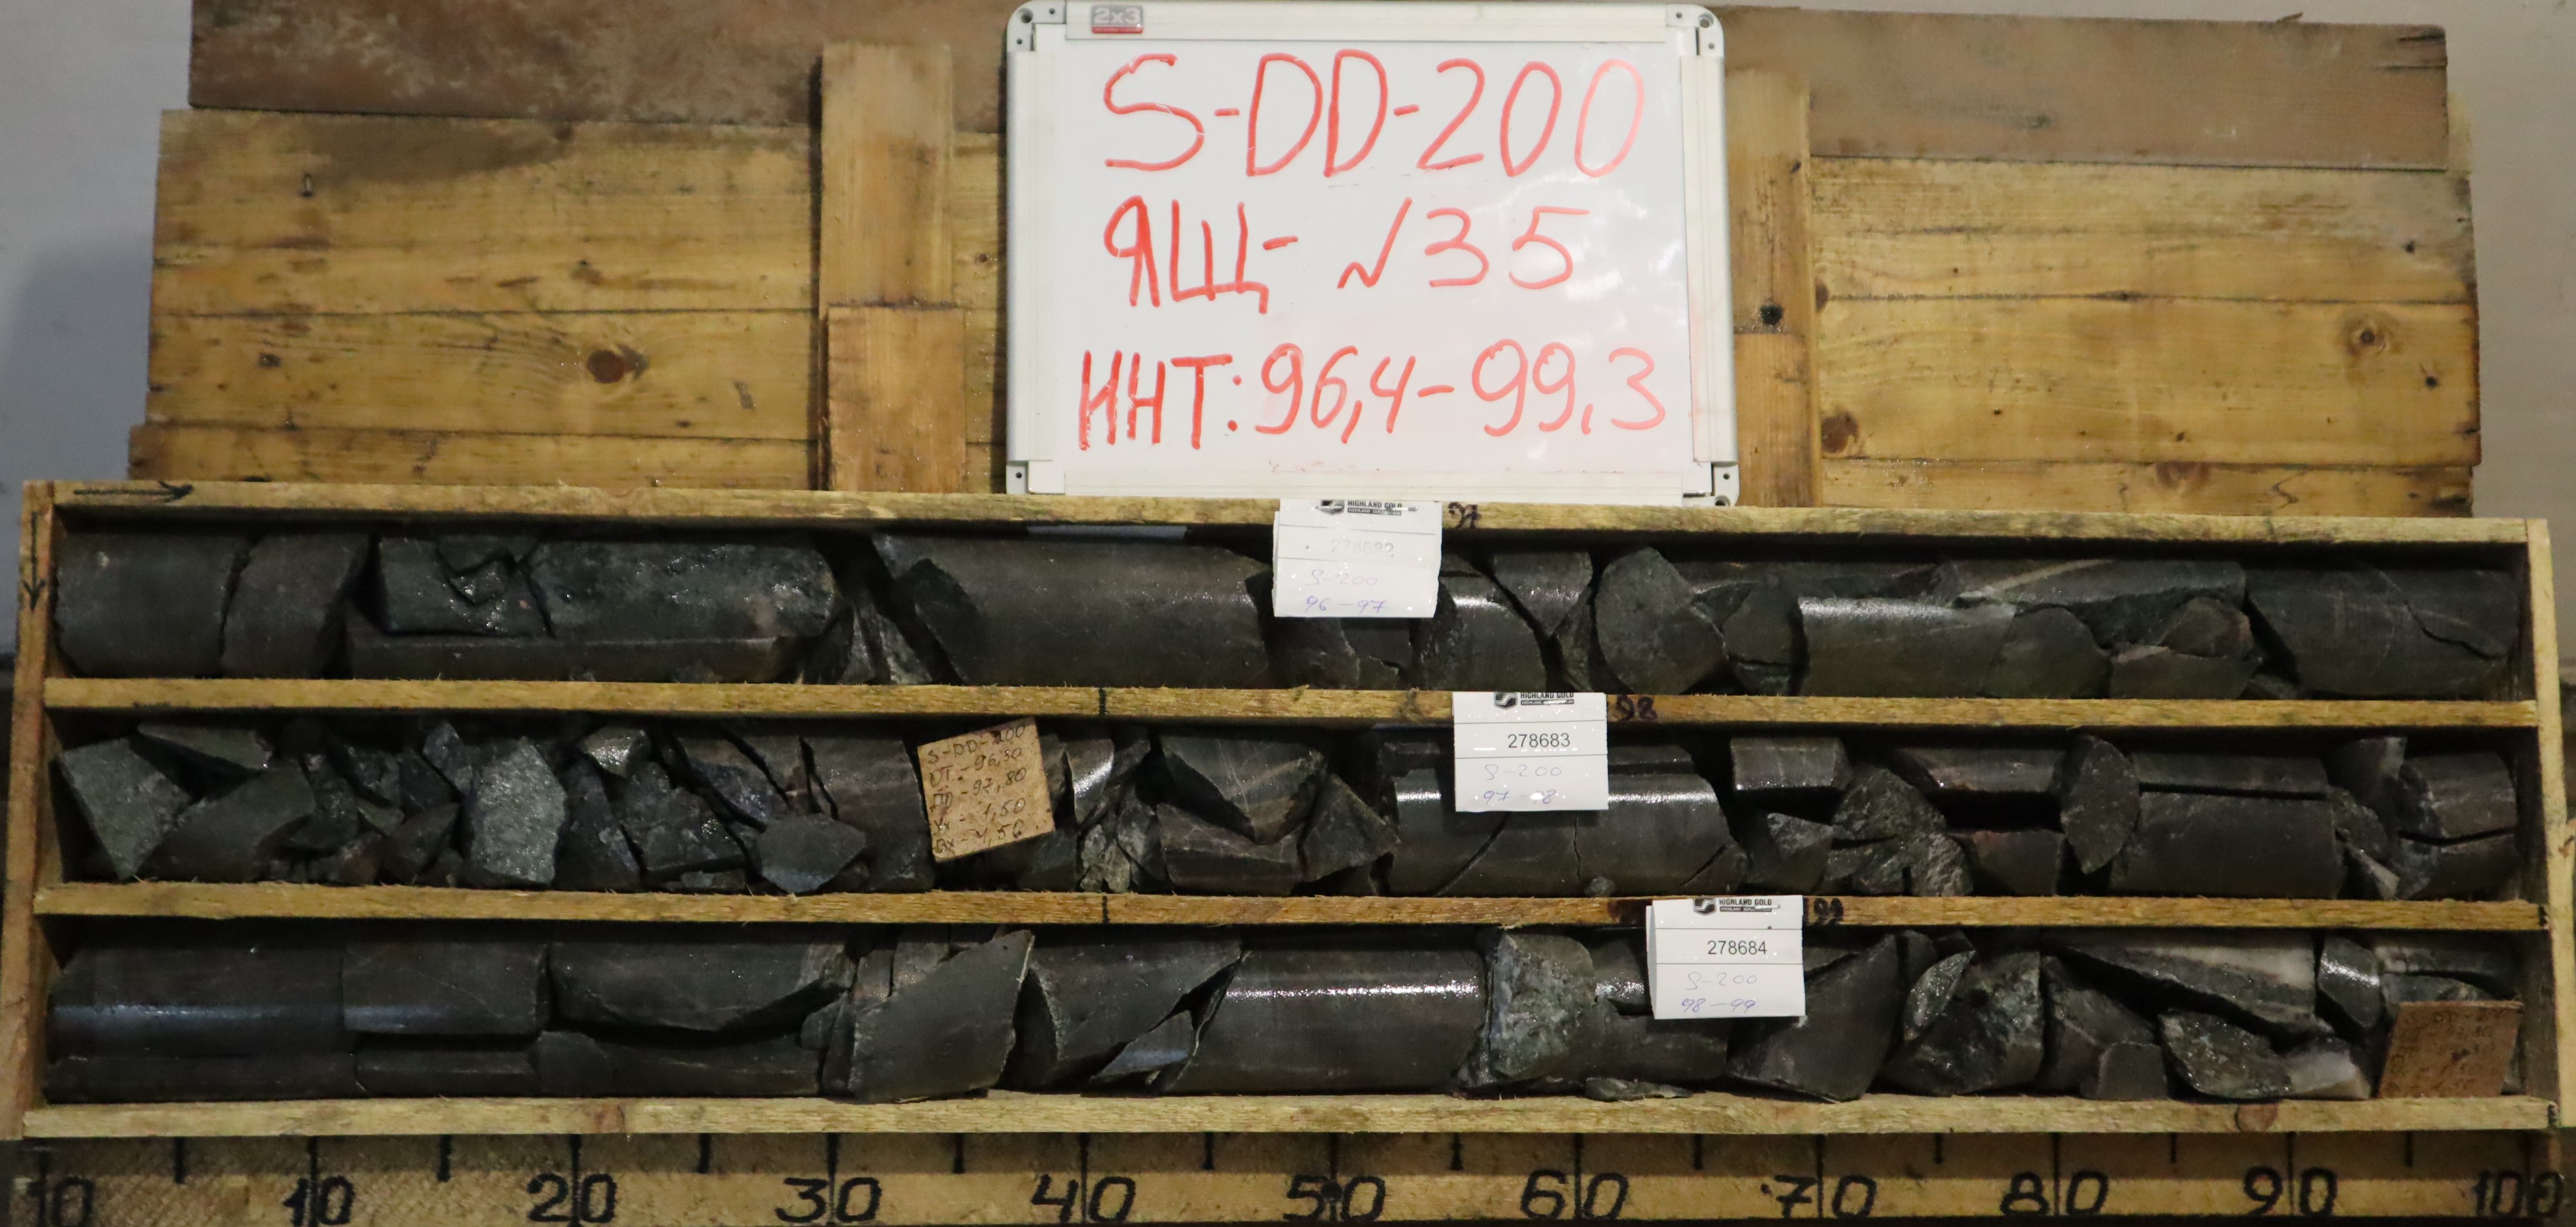 2x3
S-DD-200
ЯЩ- №35
ИНТ: 96,4-99,3
HIGHLAND GOLD
97
278682
S-200
96-97
HIGHLAND GOLD
98
278683
S-200
97-98
S-DD-200
ОТ-96,30
ДО-97,80
1,50
1,50
HIGHLAND GOLD
99
278684
S-200
98-99
0 10 20 30 40 50 60 70 80 90 100